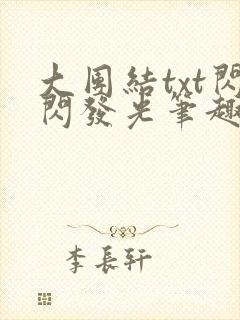 大團結txt閃
閃發光筆趣
李長軒